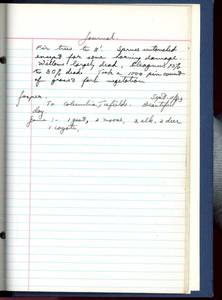 Journal
Fir trees to 8'. Spruce untouched
except for some horning damage.
Willows largely dead, 75%
to 80% dead. Took a 1000 pin count
of grass & forb vegetation
Jasper. Sept
To Columbia Icefields. Beautiful
day.
Game :- 1 goat, 2 moose, 3 elk, 2 deer
1 coyote,